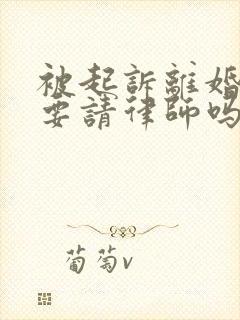 被起訴離婚
要請律師嗎
葡萄v